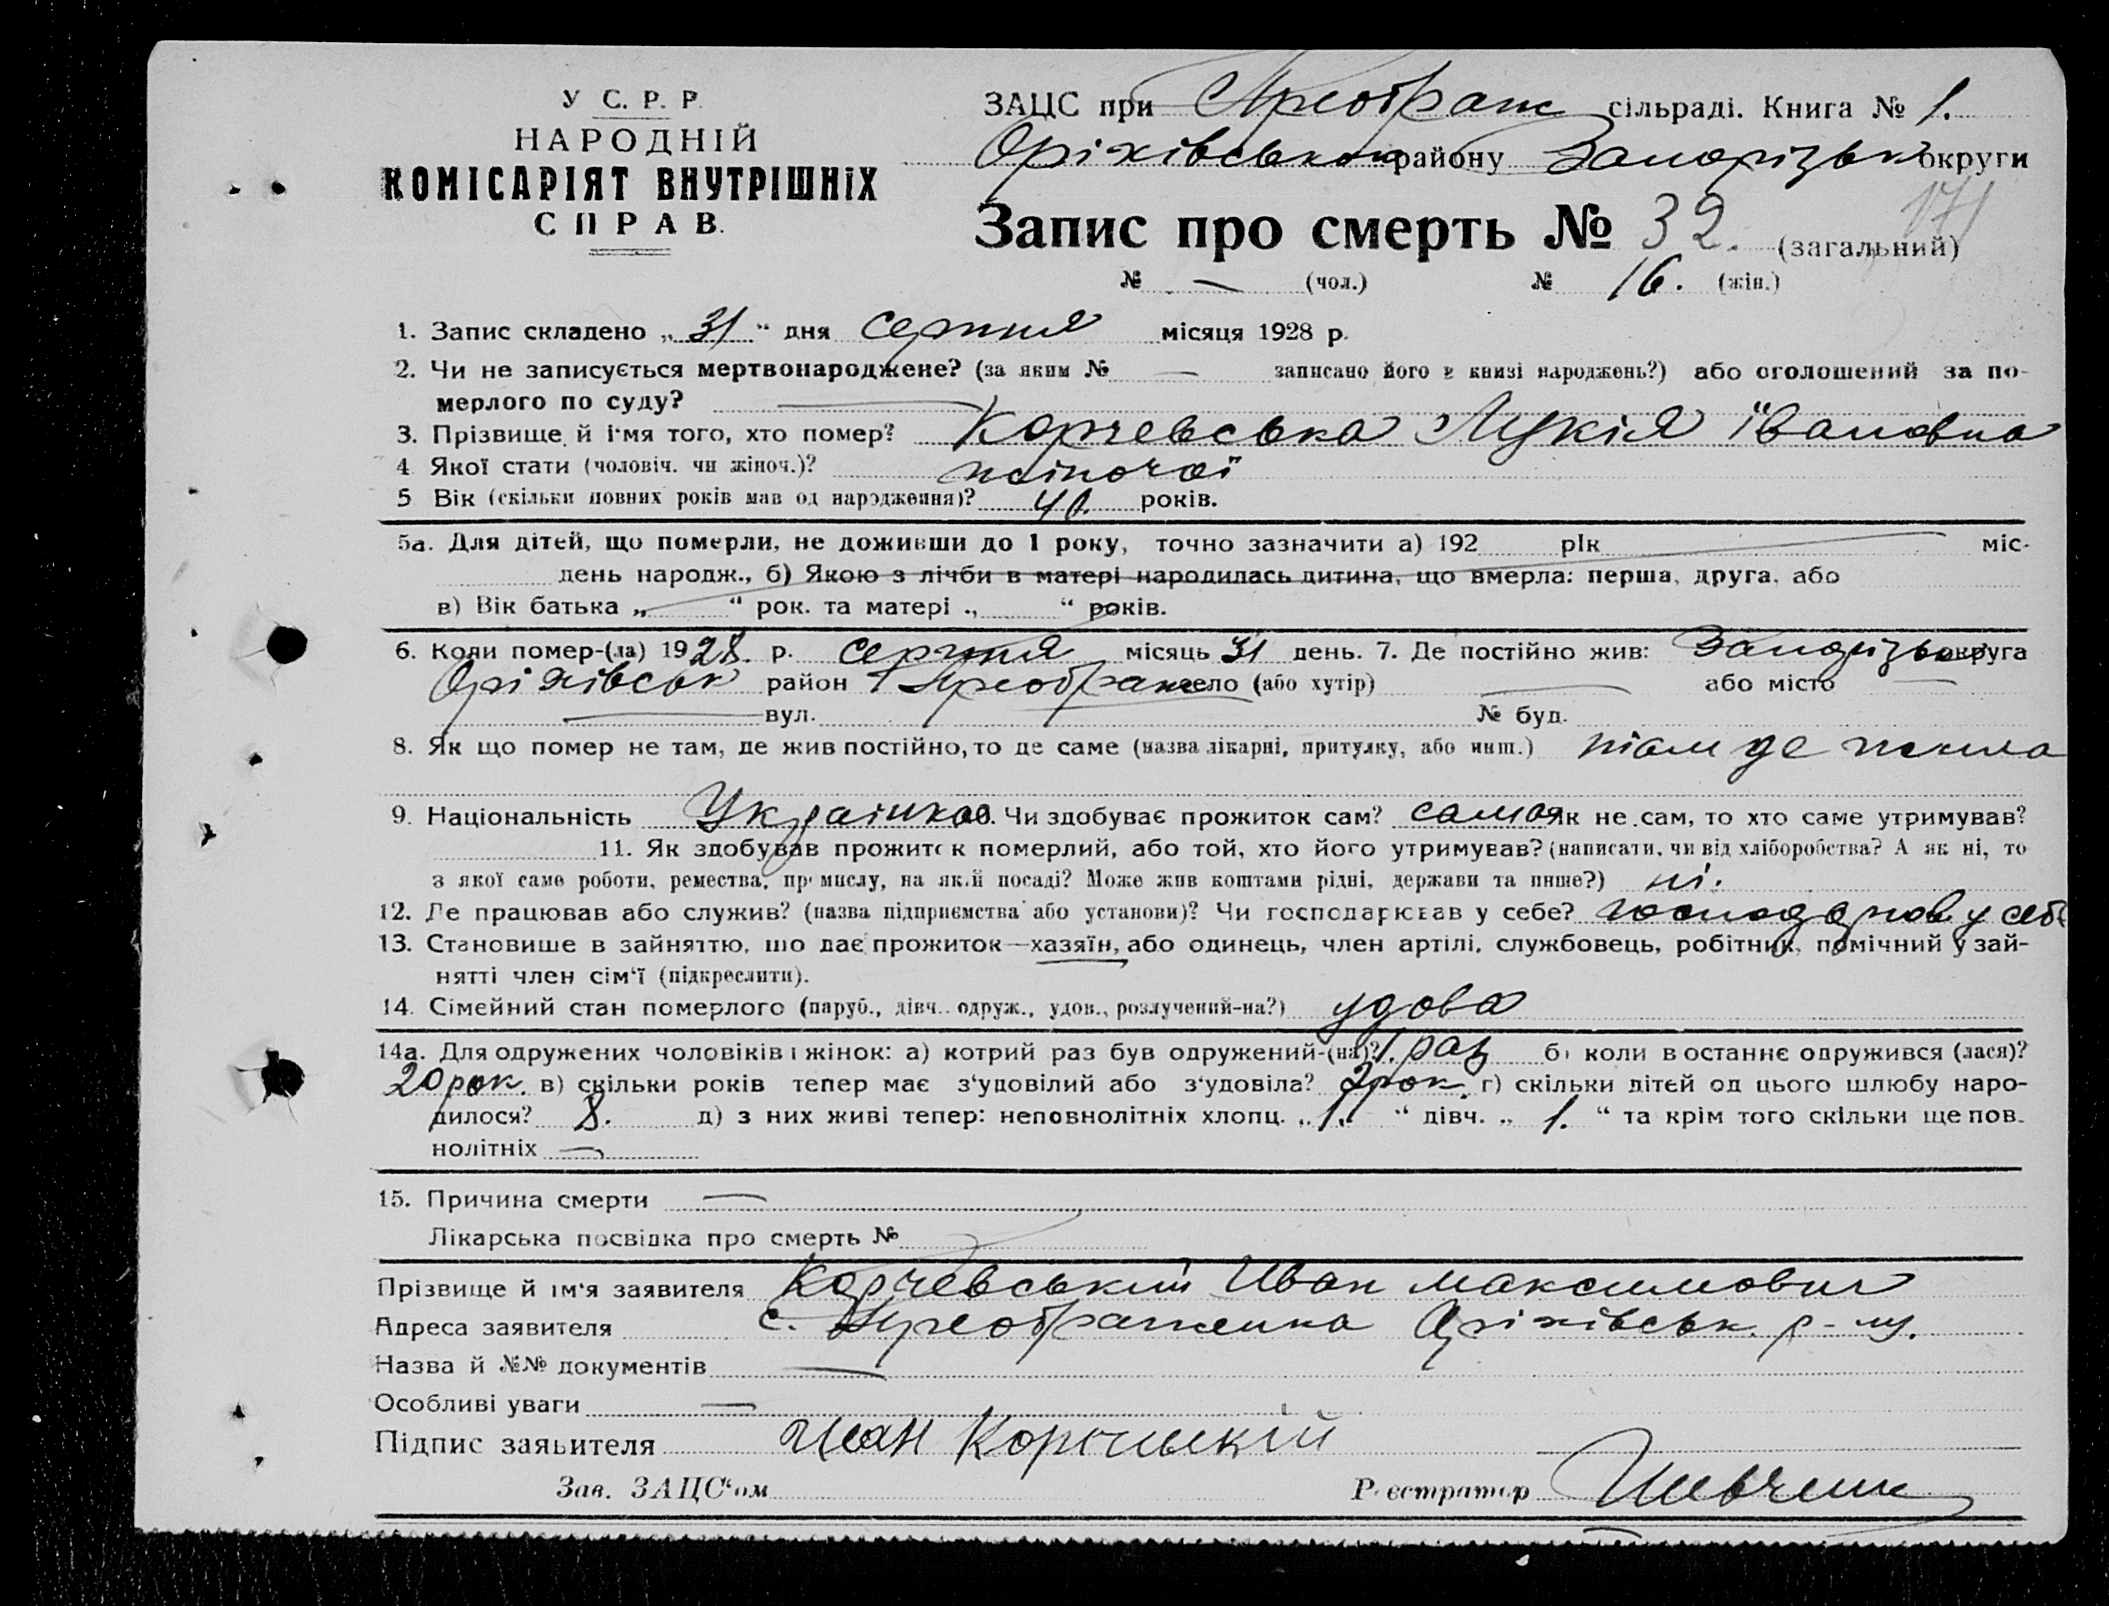 У С. Р. Р.
НАРОДНІЙ
КОМІСАРІЯТ ВНУТРІШНІХ
СПРАВ.
ЗАЦС при Преображ сільраді. Книга № 1.
Оріхівськ району Запорізьк округи
171
Запис про смерть № 32. (загальний)
№ — (чол.) № 16. (жін.)
1. Запис складено „ 31 “ дня серпня місяця 1928 р.
2. Чи не записується мертвонароджене? (за яким № — записано його в книзі народжень?) або оголошений за по-
мерлого по суду? —
3. Прізвище й ім'я того, хто помер? Корчевська Лукія Івановна
4 Якої стати (чоловіч. чи жіноч.)? жіночої
5 Вік (скільки повних років мав од народження)? 40. років.
5а. Для дітей, що померли, не доживши до 1 року, точно зазначити а) 192 рік міс-
день народж., б) Якою з лічби в матері народилась дитина, що вмерла: перша, друга, або
в) Вік батька „ “ рок. та матері „ “ років.
6. Коли помер-(ла) 1928. р. серпня місяць 31 день. 7. Де постійно жив: Запорізька округа
Оріхівськ район Преображ село (або хутір) — або місто —
— вул. № буд.
8. Як що помер не там, де жив постійно, то де саме (назва лікарні, притулку, або инш.) там де жила
9. Національність Українка 10. Чи здобуває прожиток сам? сама Як не сам, то хто саме утримував?
11. Як здобував прожиток померлий, або той, хто його утримував? (написати, чи від хліборобства? А як ні, то
з якої саме роботи, ремества, промислу, на якій посаді? Може жив коштами рідні, держави та инше?) ні.
12. Де працював або служив? (назва підприємства або установи)? Чи господарював у себе? господарював у себе
13. Становище в зайняттю, що дає прожиток—хазяїн, або одинець, член артілі, службовець, робітник, помічний у зай-
нятті член сім'ї (підкреслити).
14. Сімейний стан померлого (паруб., дівч. одруж., удов., розлучений-на?) удова
14а. Для одружених чоловіків і жінок: а) котрий раз був одружений-(на)? 1. раз б) коли востаннє одружився (лася)?
20 рок. в) скільки років тепер має з'удовілий або з'удовіла? 2 рок. г) скільки дітей од цього шлюбу наро-
дилося? 8. д) з них живі тепер: неповнолітніх хлопц. „ 1. “ дівч. „ 1. “ та крім того скільки ще пов-
нолітніх —
15. Причина смерти —
Лікарська посвідка про смерть №
Прізвище й ім'я заявителя Корчевський Иван Максимович
Адреса заявителя с. Преображенка Оріхівськ. р-ну.
Назва й №№ документів —
Особливі уваги —
Підпис заявителя Иван
Зав. ЗАЦС'ом Реєстратор